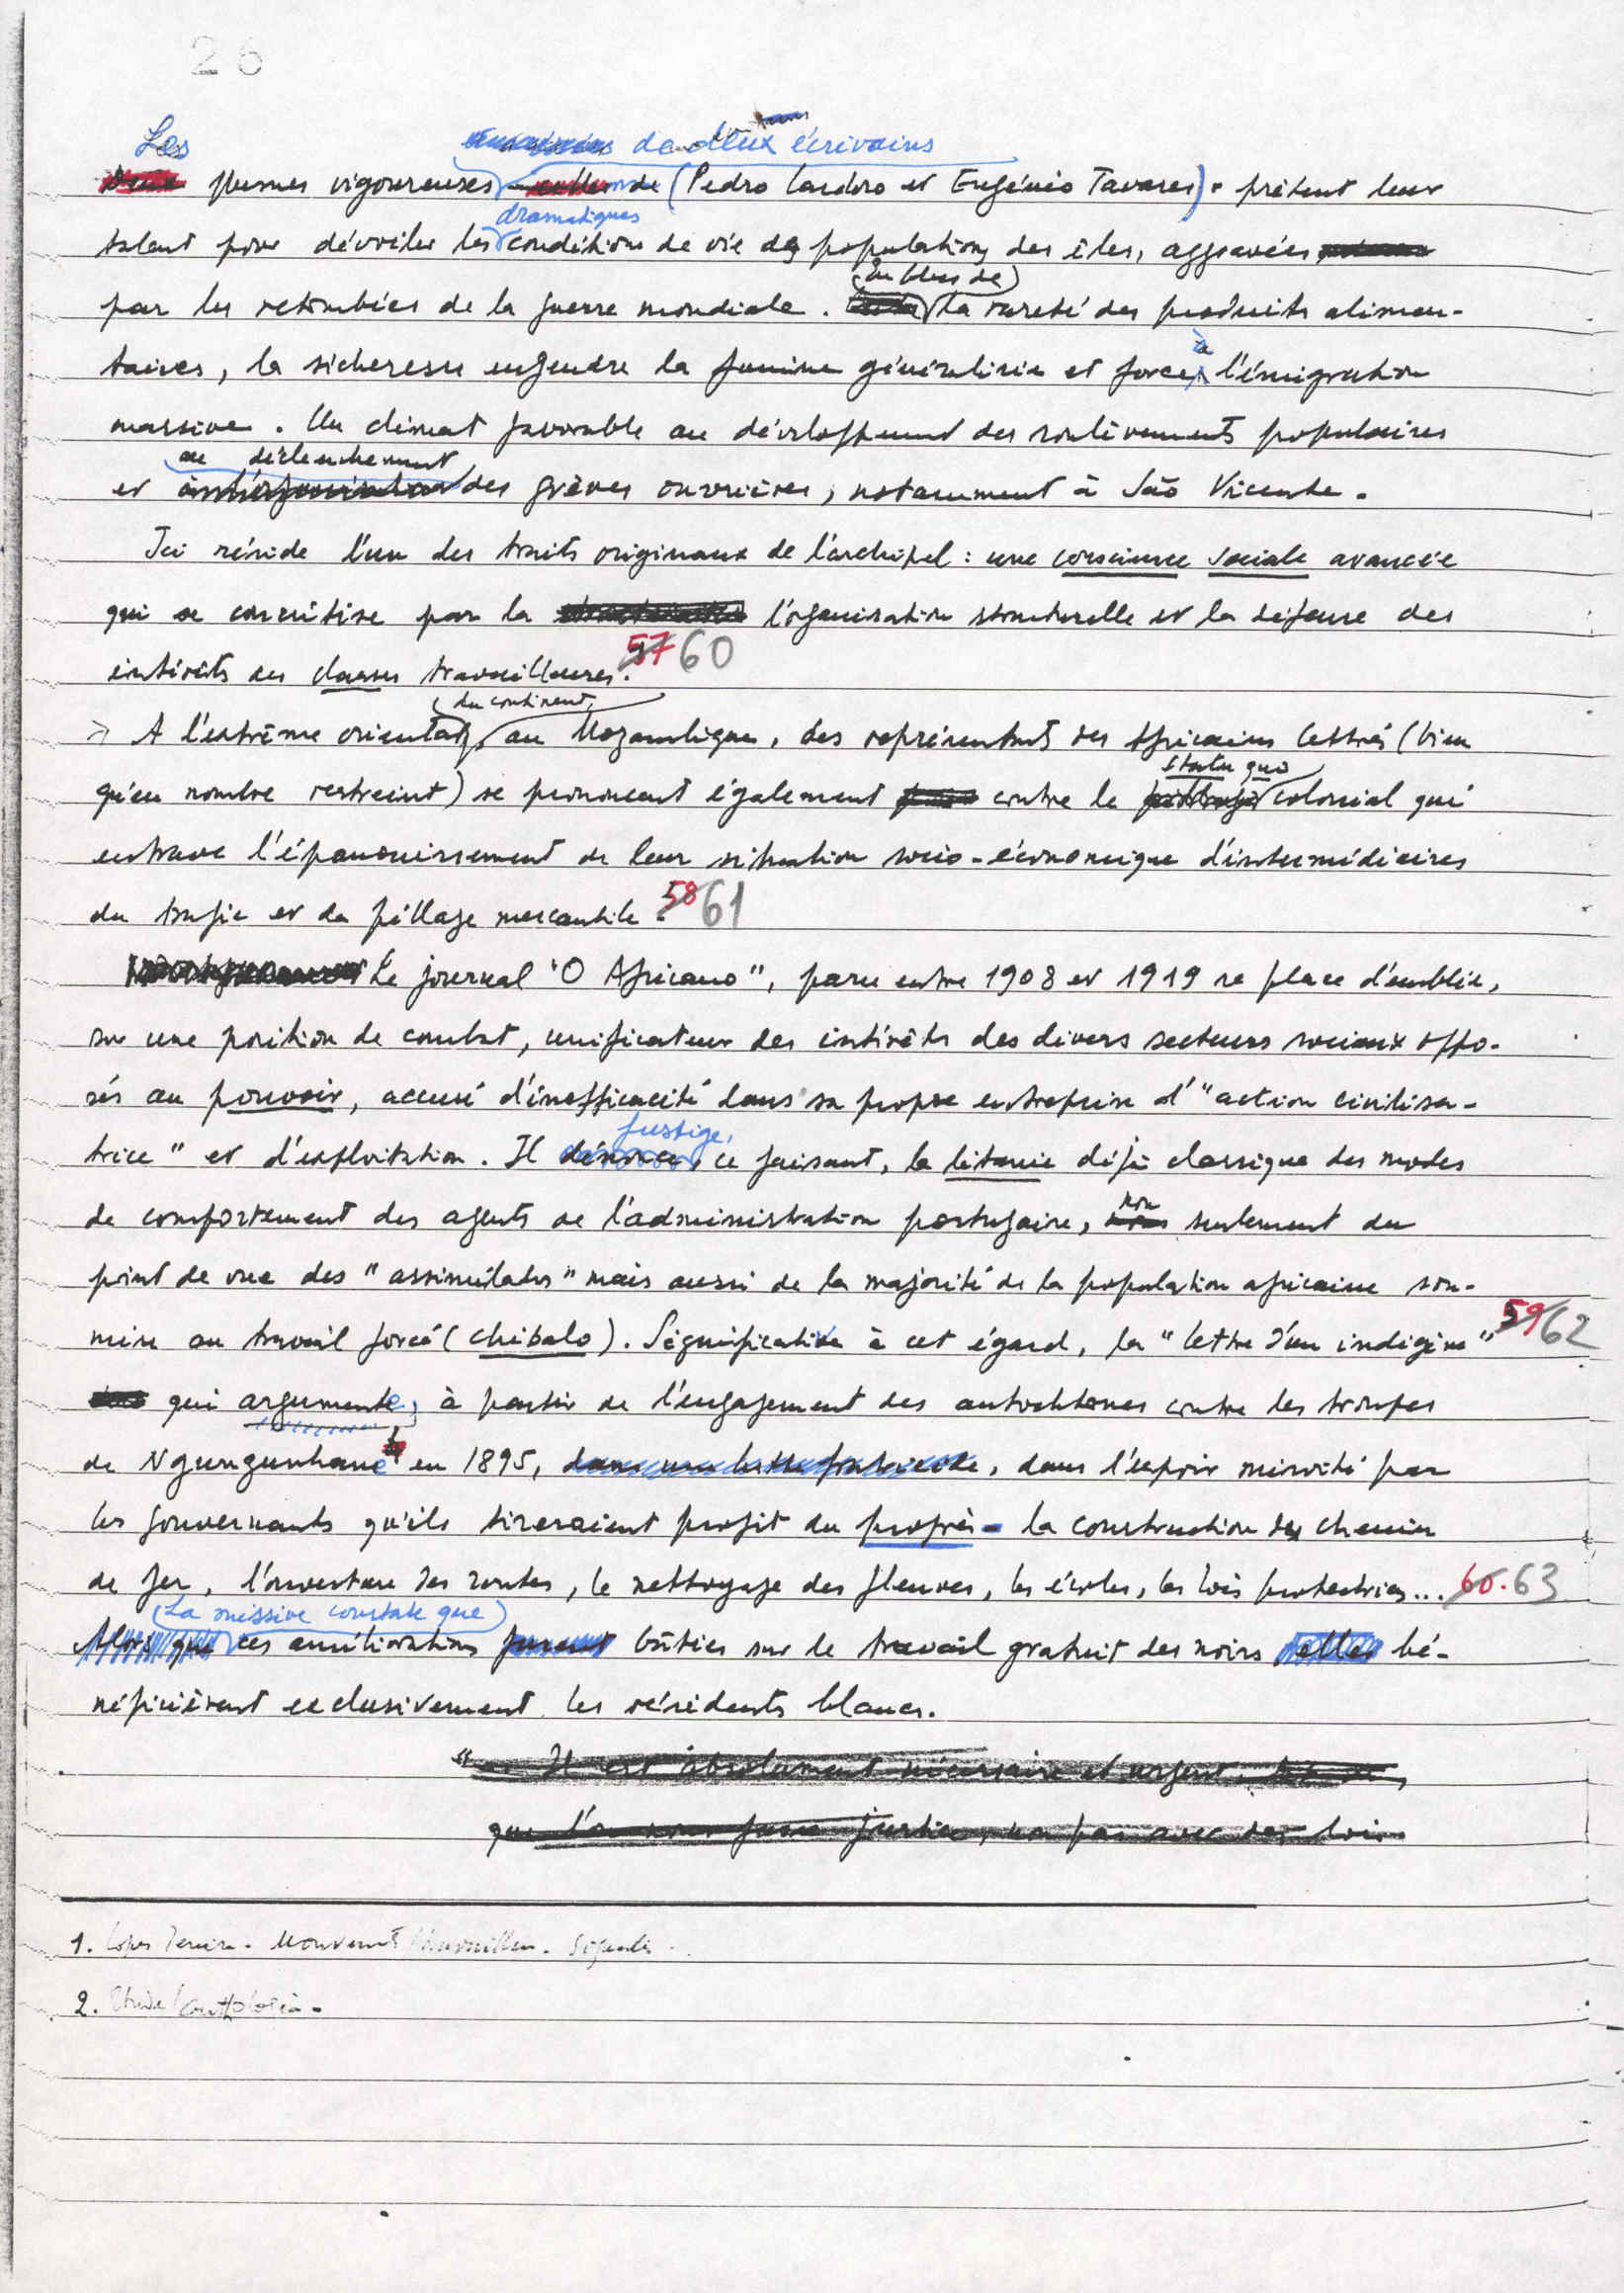 26
Les de deux écrivains
Deux plumes vigoureuses celles de (Pedro Cardoso et Eugénio Tavares) prêtent leur
dramatiques
talent pour dévoiler les conditions de vie des populations des îles, aggravées
par les retombées de la guerre mondiale. (En plus de) la rareté des produits alimen-
taires, la sécheresse engendre la famine généralisée et force à l'émigration
massive. Un climat favorable au développement des soulèvements populaires
au déclenchement
et des grèves ouvrières, notamment à São Vicente.
Ici réside l'un des traits originaux de l'archipel : une conscience sociale avancée
qui se concrétise par la l'organisation structurelle et la défense des
intérêts des classes travailleuses. 57 60
du continent,
> A l'extrême oriental, au Mozambique, des représentants des Africains lettrés (bien
statu quo
qu'en nombre restreint) se prononcent également contre le colonial qui
entrave l'épanouissement de leur situation socio-économique d'intermédiaires
du trafic et du pillage mercantile. 58 61
Le journal "O Africano", paru entre 1908 et 1919 se place d'emblée,
sur une position de combat, unificateur des intérêts des divers secteurs sociaux oppo-
sés au pouvoir, accusé d'inefficacité dans sa propre entreprise d'"action civilisa-
fustige,
trice" et d'exploitation. Il dénonce, ce faisant, la litanie déjà classique des modes
de comportement des agents de l'administration portugaise, non seulement du
point de vue des "assimilados" mais aussi de la majorité de la population africaine sou-
mise au travail forcé (chibalo). Significative à cet égard, la "lettre d'un indigène" 59 62
qui argumente, à partir de l'engagement des autochtones contre les troupes
de Ngungunhane en 1895, dans une lutte fratricide, dans l'espoir miroité par
les gouvernants qu'ils tireraient profit du progrès - la construction des chemin
de fer, l'ouverture des routes, le nettoyage des fleuves, les écoles, les lois protectrices... 60. 63
(La missive constate que)
Alors que ces améliorations furent bâties sur le travail gratuit des noirs elles bé-
néficièrent exclusivement les résidents blancs.
"Il est absolument nécessaire et urgent,
que l'on nous fasse justice, non pas avec des lois
1. Mouvement
2.